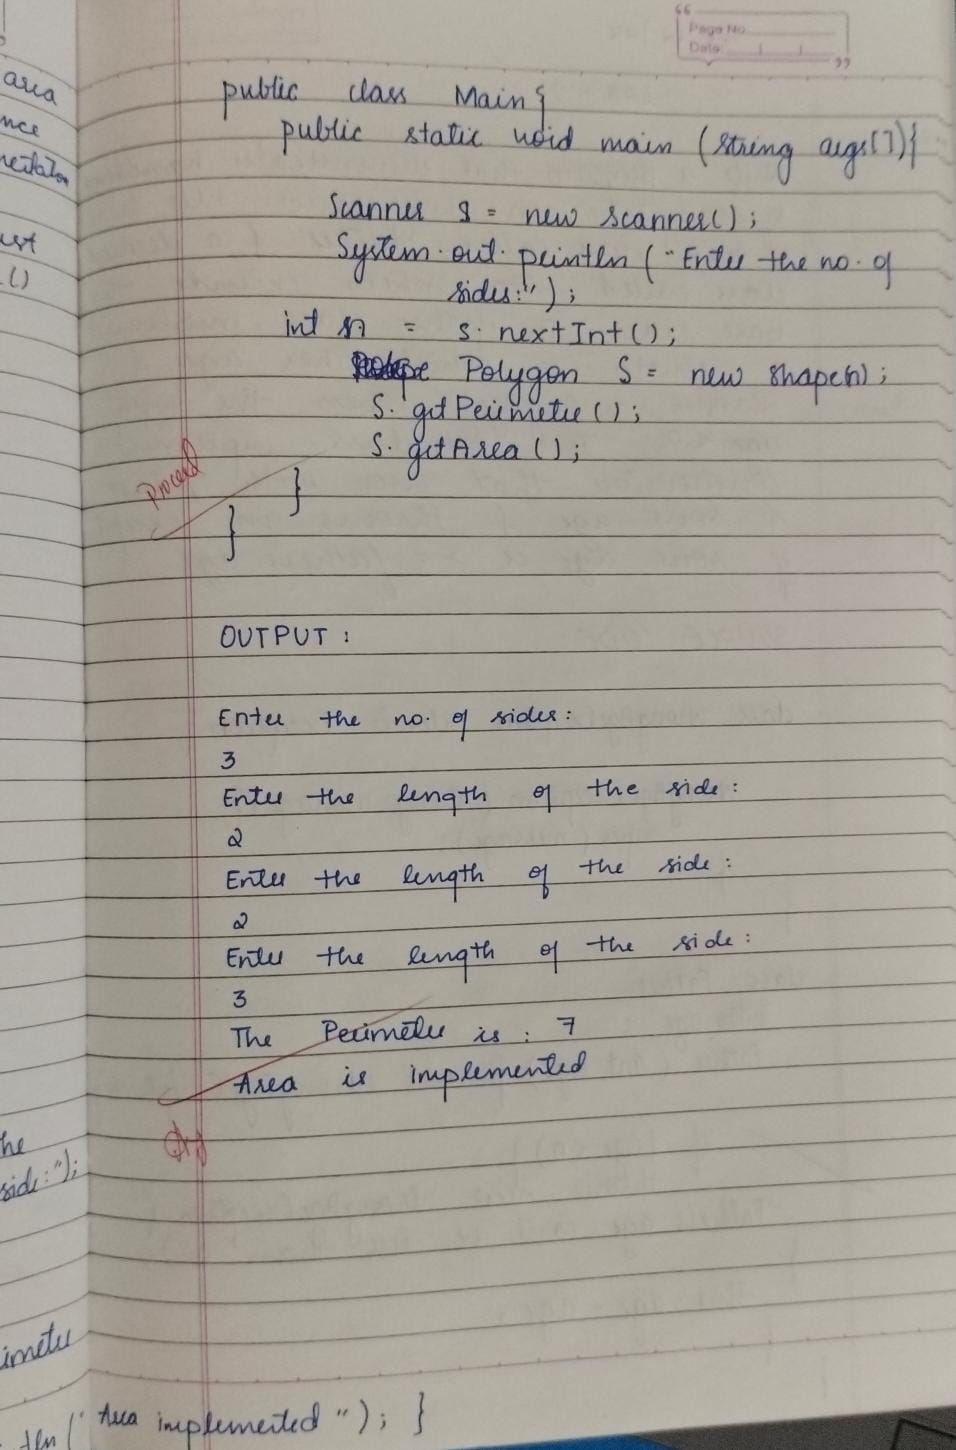 Page No.
Date:
public class Main{
public static void main (string args[]){
Scanner s = new scanner();
System.out.println ("Enter the no. of
sides:");
int n = s. nextInt();
Polygon S = new shape(n);
S. getPerimeter();
S. getArea();
}
}
Proceed
OUTPUT :
Enter the no. of sides:
3
Enter the length of the side :
2
Enter the length of the side :
2
Enter the length of the side :
3
The Perimeter is : 7
Area is implemented
area
nce
ust
.()
he
side:");
imeter
tln ("Area implemented"); }